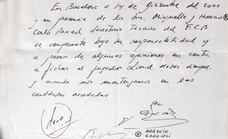 En Barcelona, a 14 de diciembre del 2000 y
en presencia de los Srs. Minguella y Horacio
Carles Rexach Secretario Técnico del F.C.B
se compromete bajo su responsabilidad y a
pesar de algunas opiniones en contra
a fichar al jugador Lionel Messi siempre
y cuando nos mantengamos en las
cantidades acordadas
HORACIO
GAGGIOLI